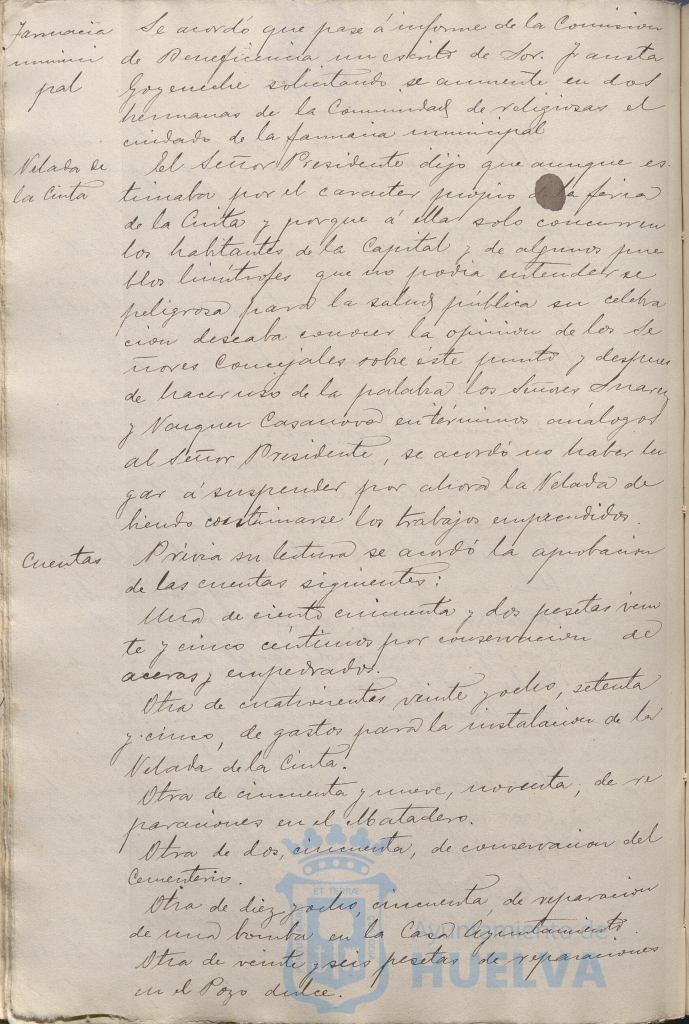 Farmacia
munici
pal
Se acordó que pase á informe de la Comision
de Beneficencia un escrito de Sor. Fausta
Goyeneche solicitando se aumente en dos
hermanas de la Comunidad de religiosas el
cuidado de la farmacia municipal
Velada de
la Cinta
El Señor Presidente dijo que aunque es-
timaba por el caracter propio de la feria
de la Cinta y porque á ella solo concurren
los habitantes de la Capital y de algunos pue
blos limítrofes que no podia entenderse
peligrosa para la salud pública su celebra
cion deseaba conocer la opinion de los Se
ñores Concejales sobre éste punto y despues
de hacer uso de la palabra los Señores Suarez
y Vazquez Casanova en términos análogos
al Señor Presidente, se acordó no haber lu
gar á suspender por ahora la Velada de
biendo continuarse los trabajos emprendidos.
Cuentas
Prévia su lectura se acordó la aprobacion
de las cuentas siguientes:
Una de ciento cincuenta y dos pesetas vein
te y cinco céntimos por conservacion de
aceras y empedrados.
Otra de cuatrocientas veinte y ocho, setenta
y cinco, de gastos para la instalacion de la
Velada de la Cinta.
Otra de cincuenta y nueve, noventa, de re
paraciones en el Matadero.
Otra de dos, cincuenta, de conservacion del
Cementerio.
Otra de diez y ocho, cincuenta, de reparacion
de una bomba en la Casa Ayuntamiento.
Otra de veinte y seis pesetas de reparaciones
en el Pozo dulce.
ET TERRÆ
Ayuntamiento de
HUELVA